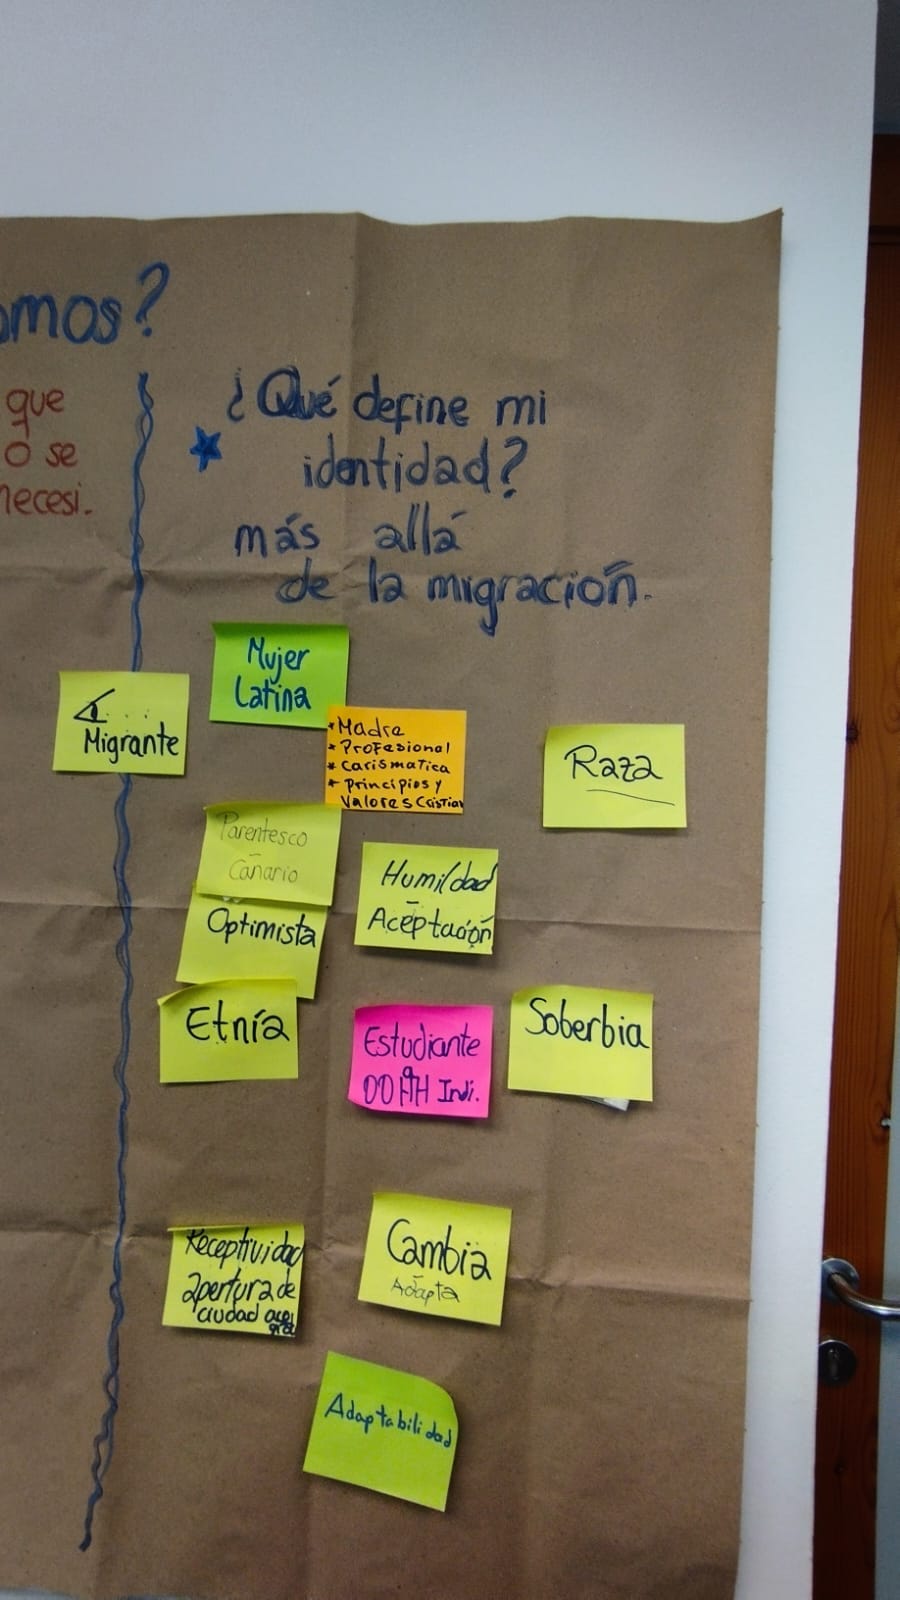 omos?
que
o se
necesi.
¿Qué define mi
identidad?
más allá
de la migración.
Mujer
Latina
Migrante
*Madre
*Profesional
*carismatica
*Principios y
Valores Cristian
Raza
Parentesco
Canario
Humildad
Aceptación
Optimista
Etnía
Estudiante
DDHH Indi.
Soberbia
Receptividad
apertura de
ciudad
Cambia
Adapta
Adaptabilidad